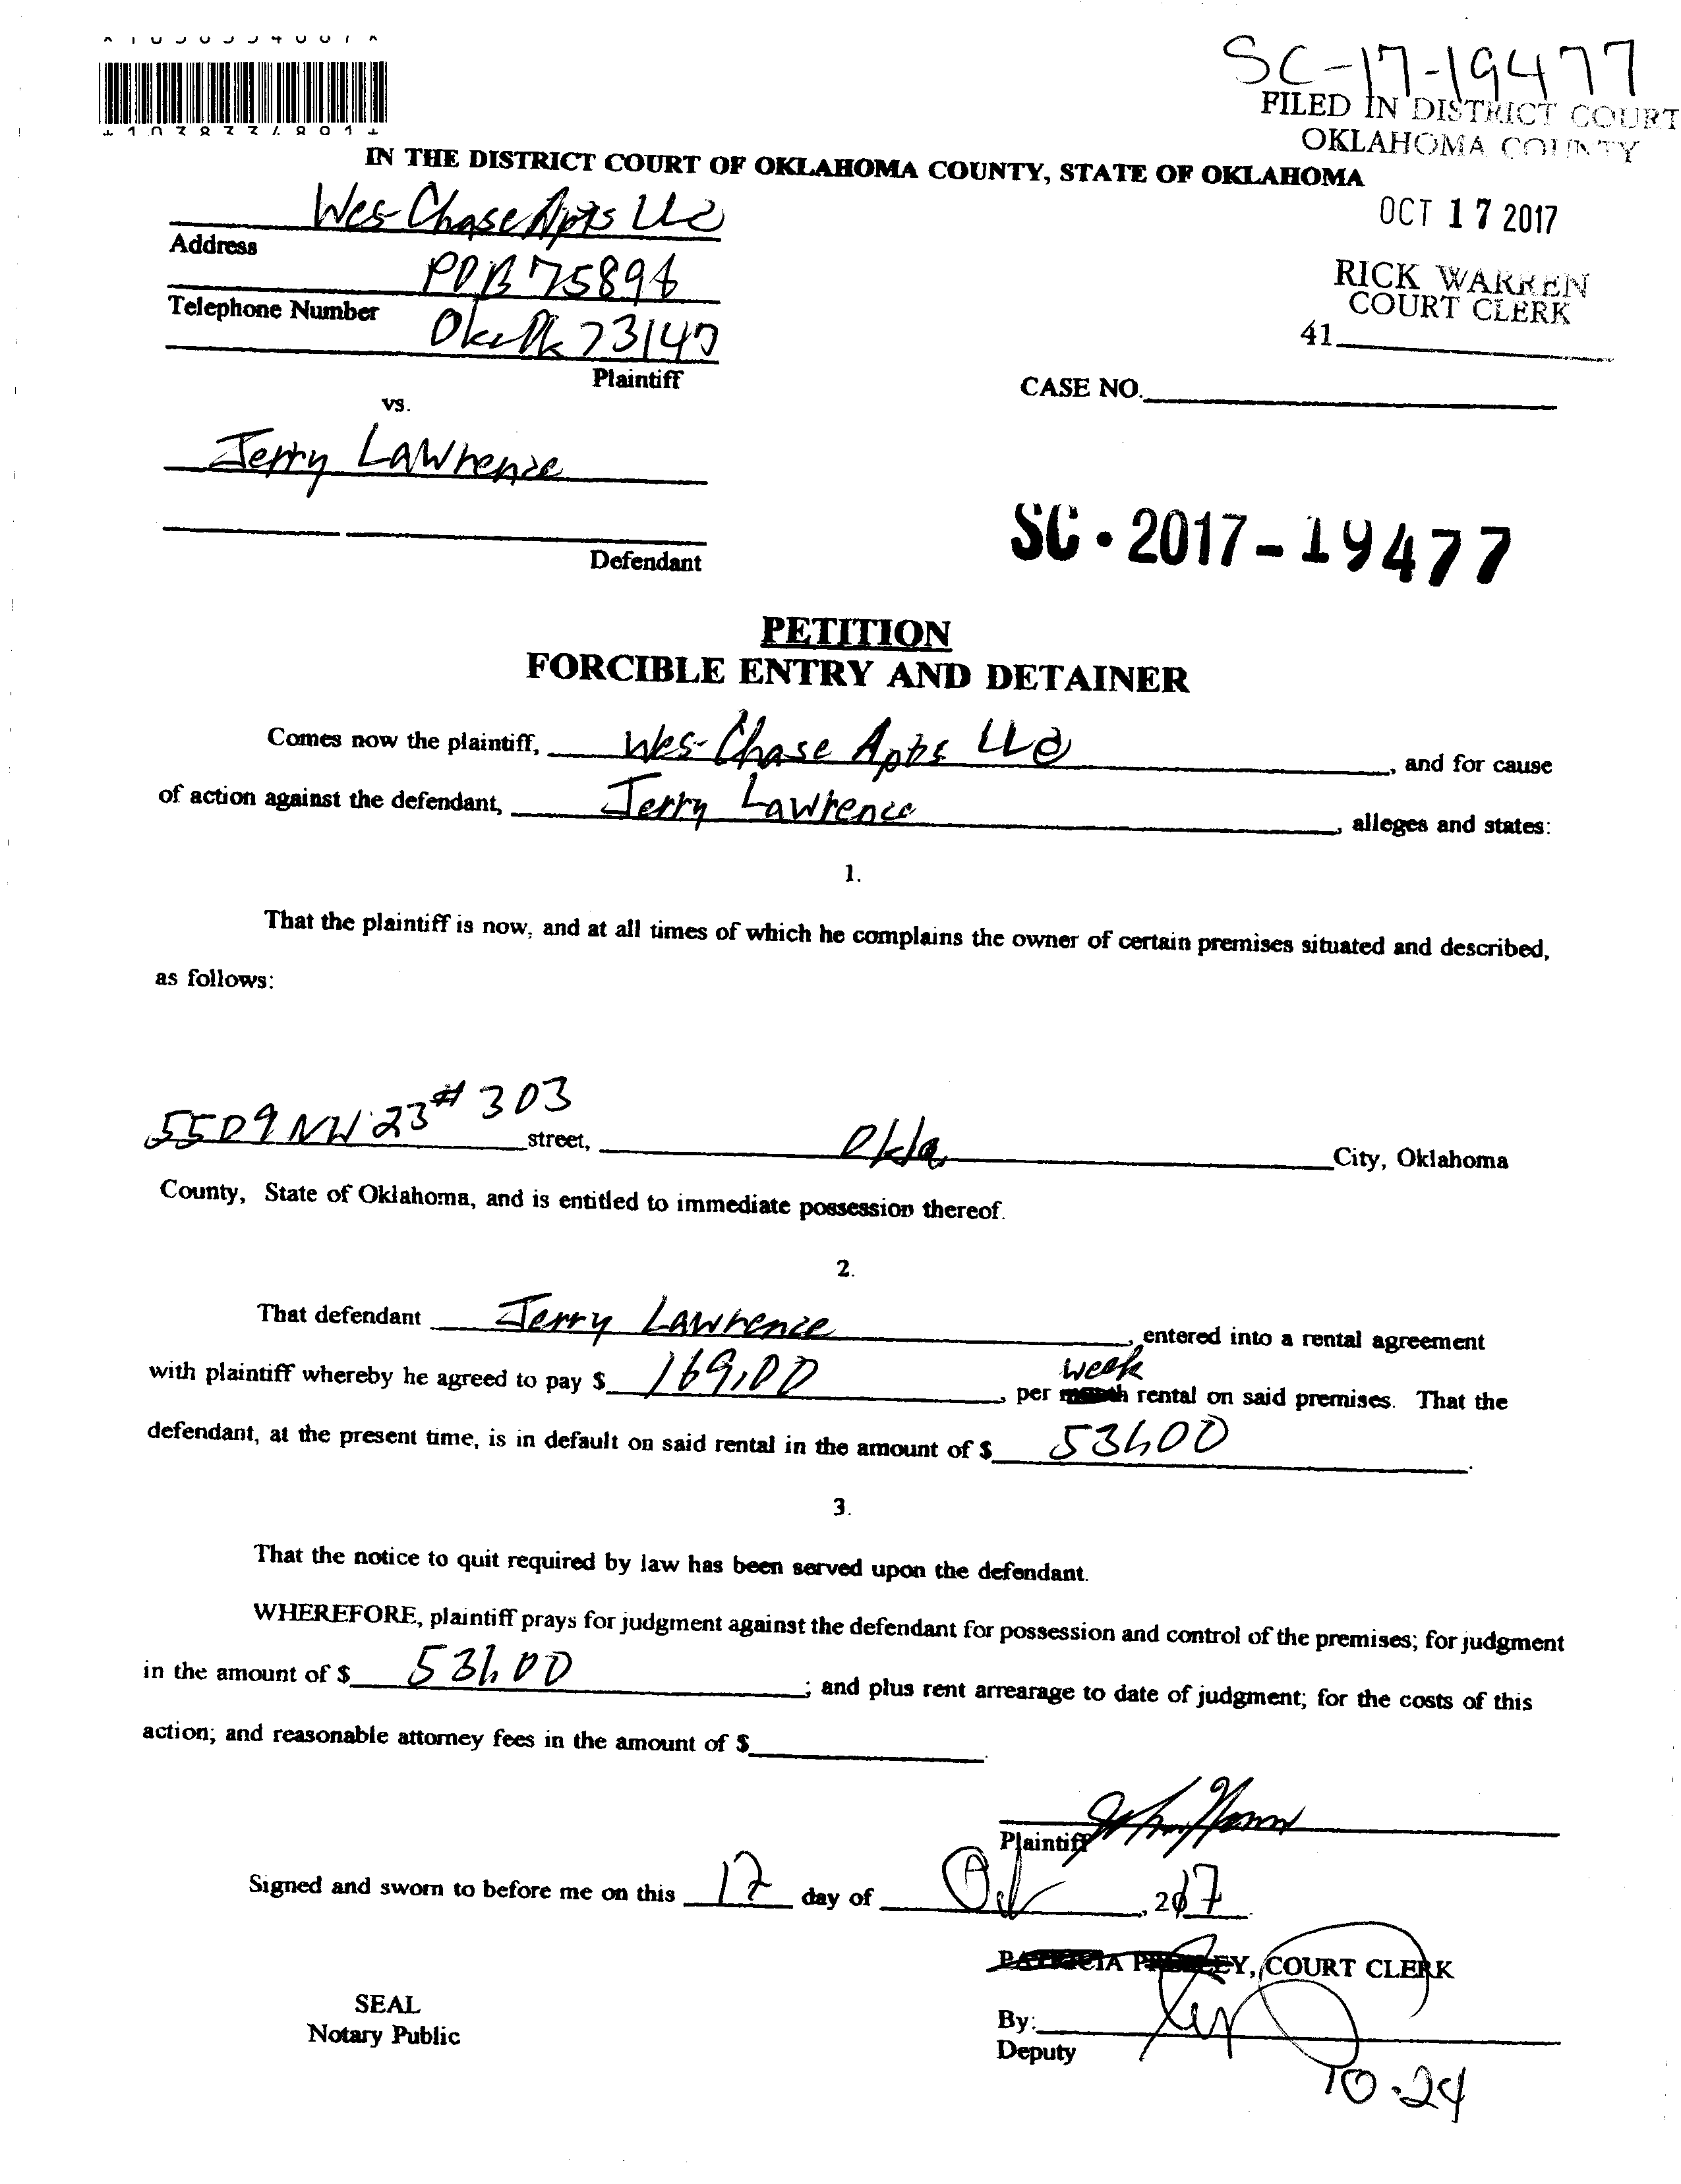 SC-17-19477
FILED IN DISTRICT COURT
OKLAHOMA COUNTY
IN THE DISTRICT COURT OF OKLAHOMA COUNTY, STATE OF OKLAHOMA
OCT 17 2017
Wes-Chase Apts LLC
Address
POB 75894
RICK WARREN
COURT CLERK
Telephone Number
73147
41
Plaintiff
CASE NO.
vs.
Jerry Lawrence
SC-2017-19477
Defendant
PETITION
FORCIBLE ENTRY AND DETAINER
Comes now the plaintiff, Wes-Chase Apts LLC, and for cause
of action against the defendant, Jerry Lawrence, alleges and states:
1.
That the plaintiff is now, and at all times of which he complains the owner of certain premises situated and described,
as follows:
5509 NW 23 # 303 street, Okla City, Oklahoma
County, State of Oklahoma, and is entitled to immediate possession thereof.
2.
That defendant Jerry Lawrence, entered into a rental agreement
week
with plaintiff whereby he agreed to pay $ 169.00, per month rental on said premises. That the
defendant, at the present time, is in default on said rental in the amount of $ 531.00.
3.
That the notice to quit required by law has been served upon the defendant.
WHEREFORE, plaintiff prays for judgment against the defendant for possession and control of the premises; for judgment
in the amount of $ 531.00; and plus rent arrearage to date of judgment; for the costs of this
action; and reasonable attorney fees in the amount of $.
Plaintiff
Signed and sworn to before me on this 17 day of Oct, 2017.
PATRICIA PRESLEY, COURT CLERK
SEAL
Notary Public
By:
Deputy
10-24